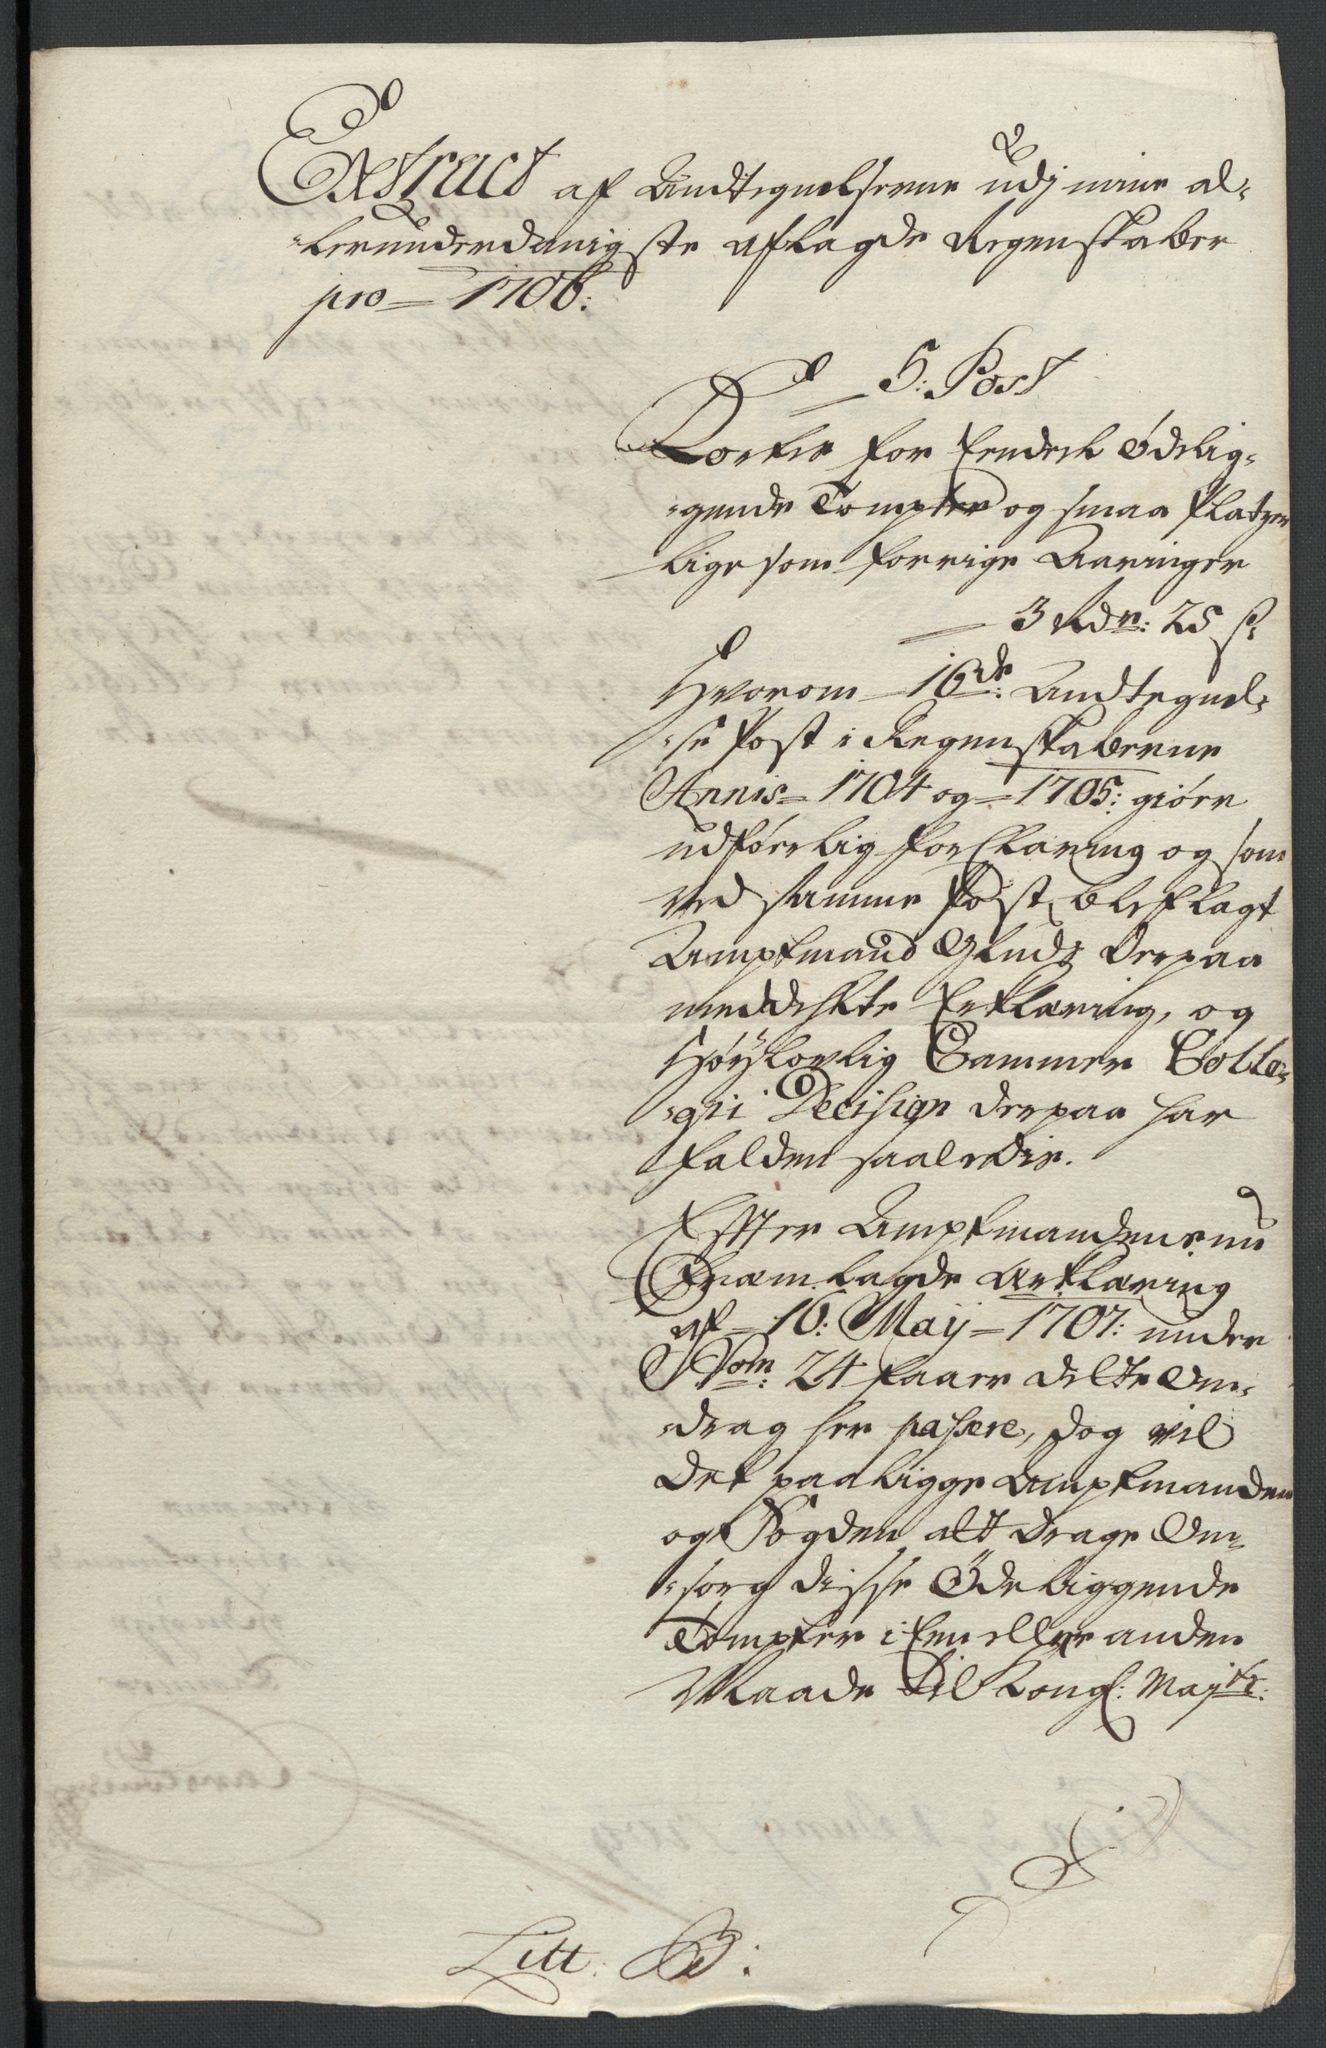 Extract af Andtegnelserne udj mine al-
-lerunderdanigste aflagde Regenskaber
pro = 1706:
5: Post
Korter for Eendeel Ødelig-
-gende Tompter og smaa Platzer
lige som forrige Aaringer
3 Rdr: 25 s:
Hvorom 16de: Andtegnel-
-se Post i Regenskaberne
Annis = 1704 og = 1705: giøre
udførlig forClaring og som
ved samme Post, blef lagt
Amptmand Gluds Derpaa
meddeelte Erklæring, og
Høylovlig Cammer Colle-
-gii Decision derpaa har
falden saaledis.
Effter Amptmandens nu
Fræmlagde Erklæring
af 16: Maij = 1707: under
Nom: 24 faaer dette Om-
-drag her passere, dog vil
det paaligge Amptmanden
og Fogden att drage Om-
-sorg disse Øde liggende
Tompter i Een eller anden
Maade til Kongl: Majts:
Litt: B: